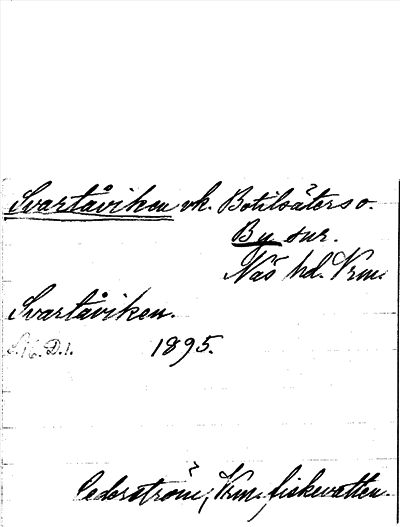 Svartåviken vk. Botilsäters o.
By snr.
Näs hd. Vrm.
Svartåviken.
S.16. D.1. 1895.
Cederström, Vrm. fiskevatten.